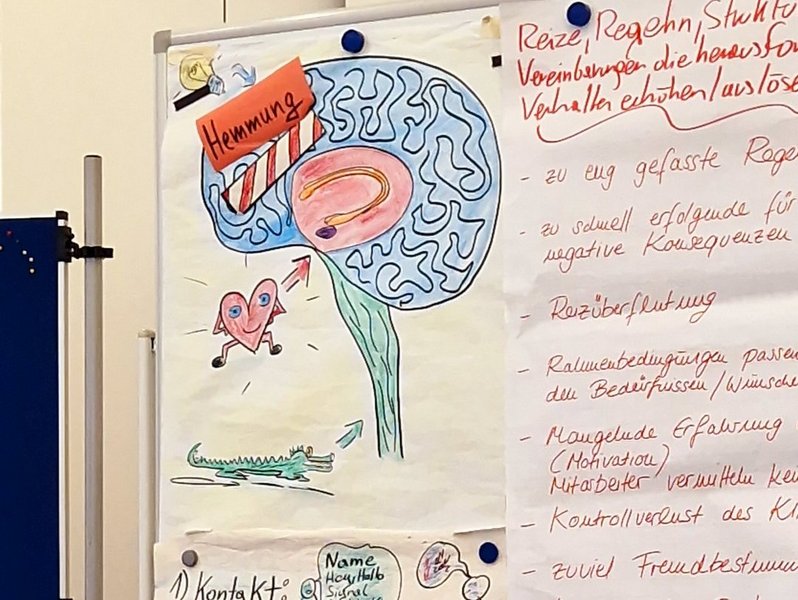 Hemmung
Reize, Regeln, Struktu
Vereinbarungen die herausfo
Verhalten erhöhen/auslöse
- zu eng gefasste Rege
- zu schnell erfolgende für
negative Konsequenzen
- Reizüberflutung
- Rahmenbedingungen passe
den Bedürfnissen/Wünsche
- Mangelnde Erfahrung
(Motivation)
Mitarbeiter vermitteln kei
- Kontrollverlust des Kl
- zuviel Fremdbestimm
1) Kontakt:
Name
Signal